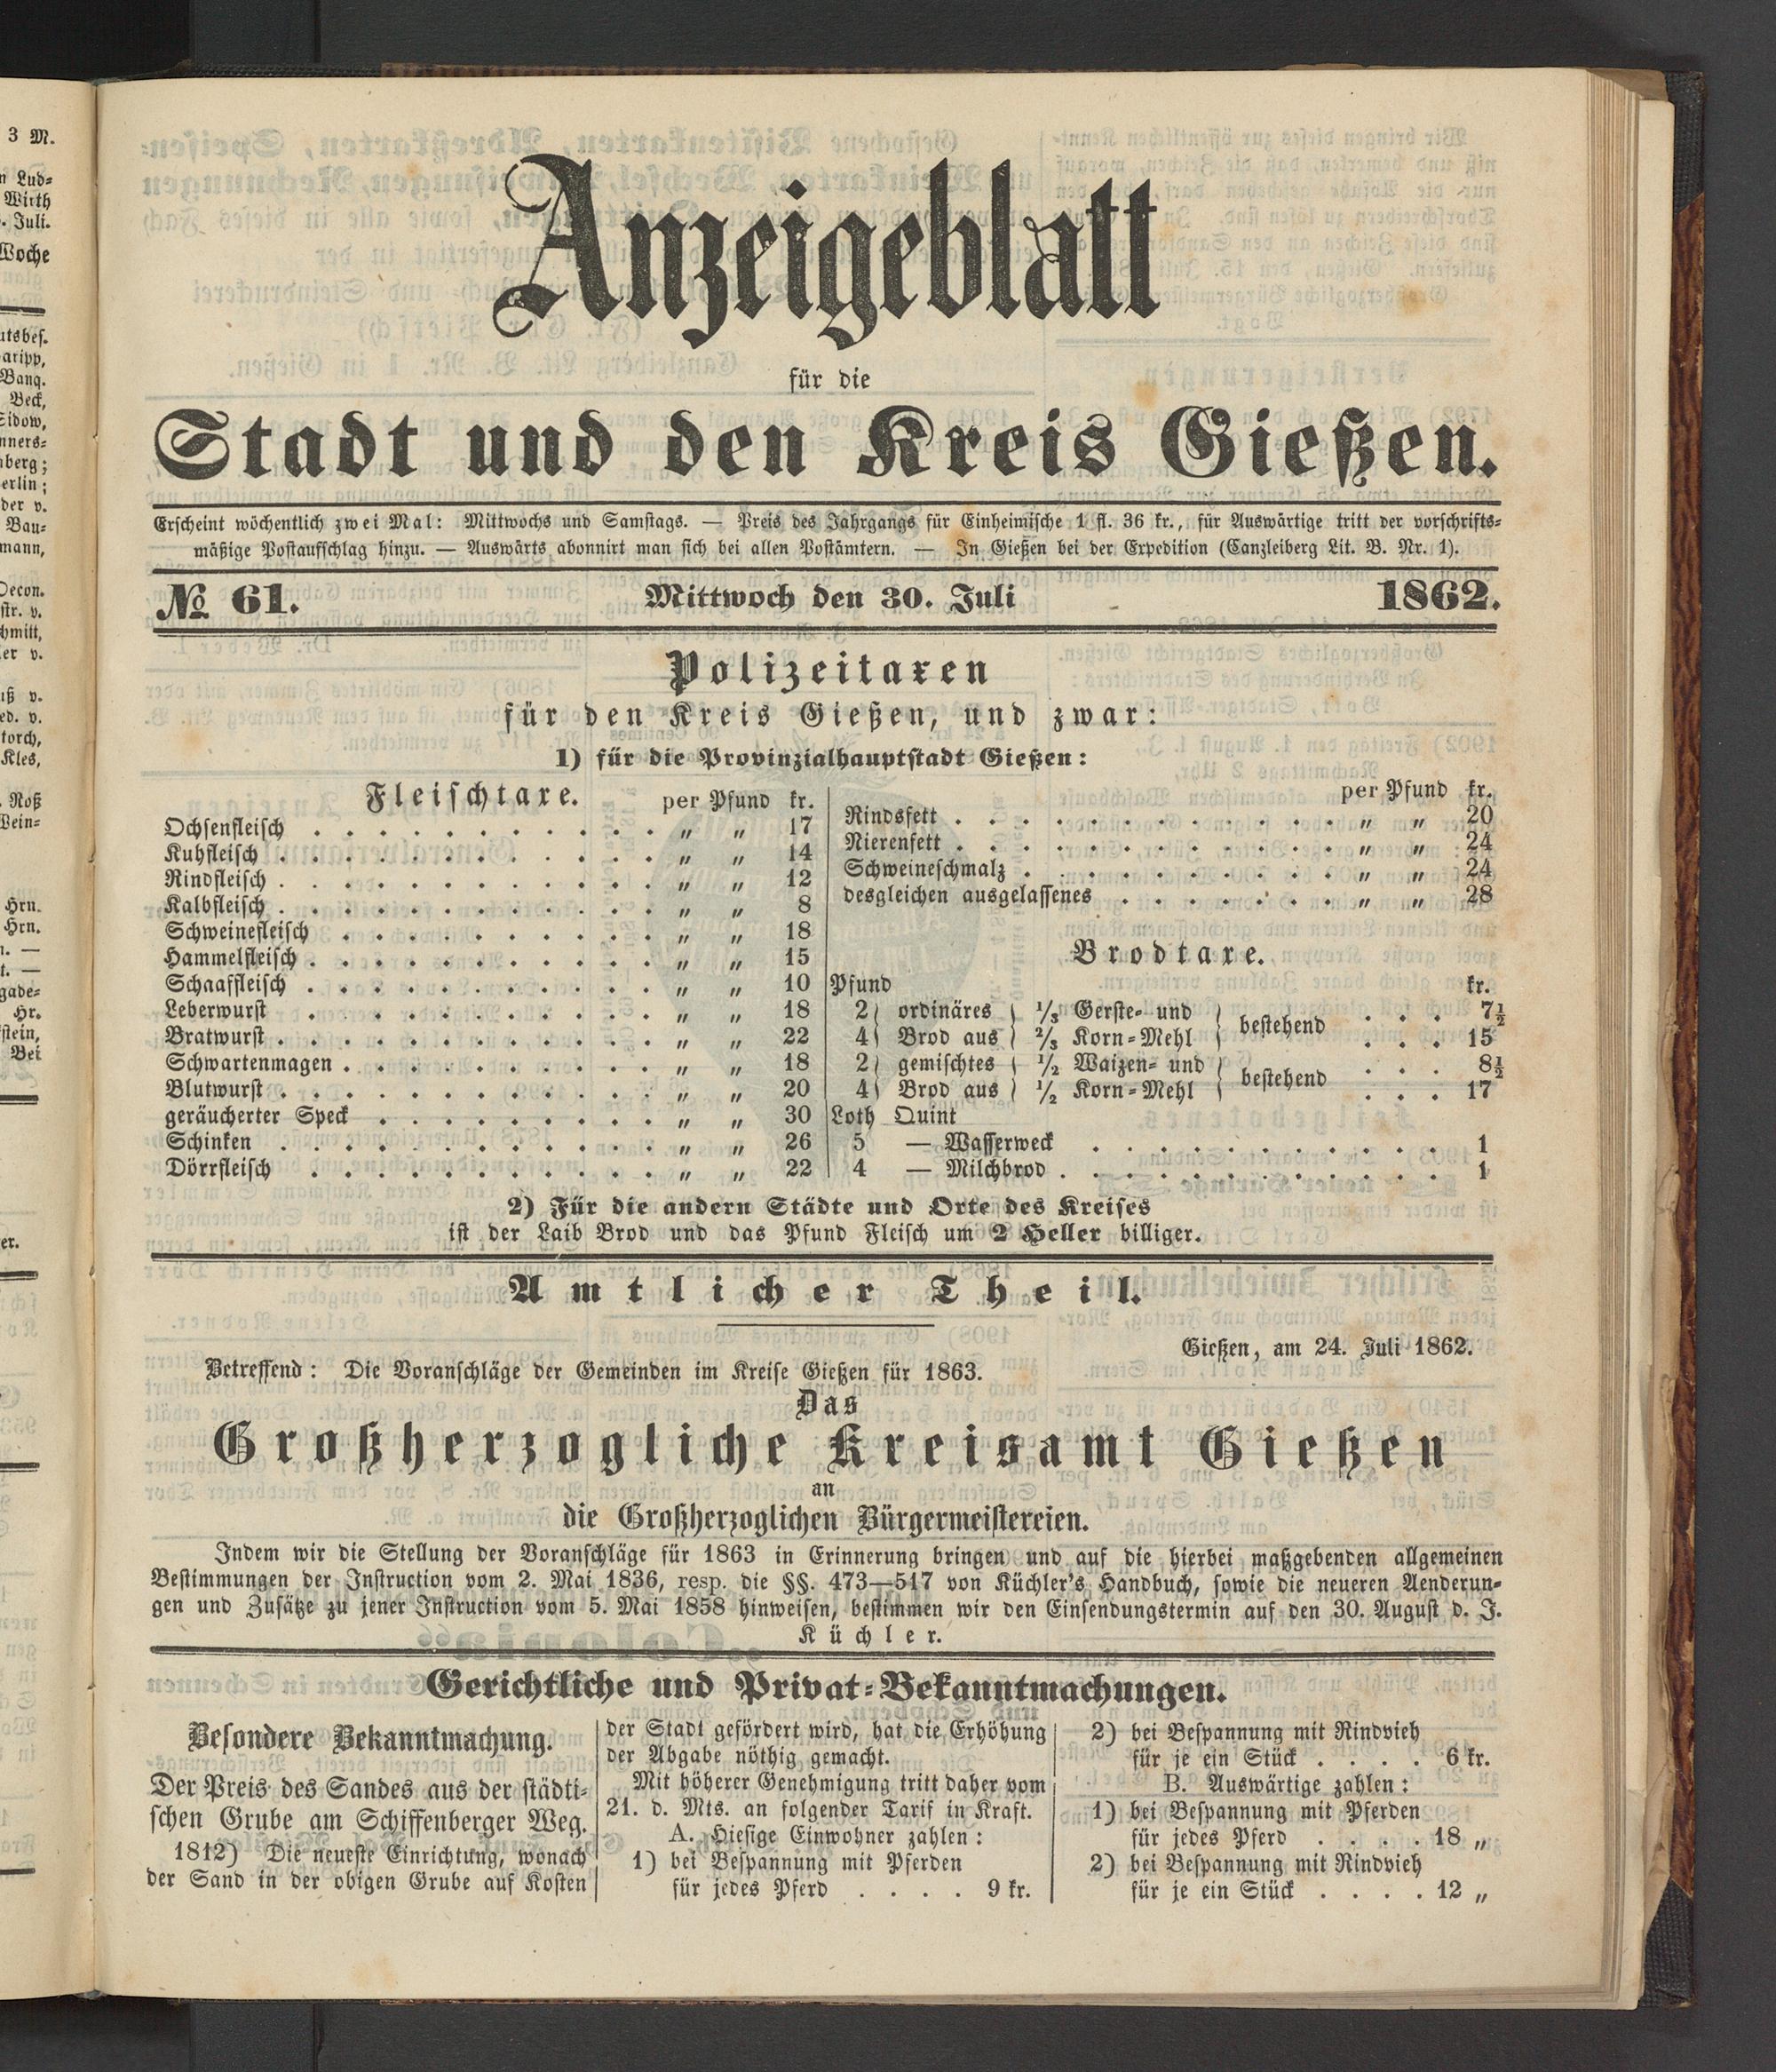 3 M.
n Lud-
Wirth
. Juli.
Woche
utsbes.
aripp,
Banq.
Beck,
Sidow,
nners-
nberg;
erlin;
der v.
Bau-
mann,
Decon.
str. v.
hmitt,
er v.
iß v.
ed. v.
torch,
Kles,
. Noß
Wein-
Hrn.
Hrn.
gade-
Hr.
stein,
Bei
er.
Anzeigeblatt
für die
Stadt und den Kreis Gießen.
Erscheint wöchentlich zwei Mal: Mittwochs und Samstags. — Preis des Jahrgangs für Einheimische 1 fl. 36 kr., für Auswärtige tritt der vorschrifts-
mäßige Postaufschlag hinzu. — Auswärts abonnirt man sich bei allen Postämtern. — In Gießen bei der Expedition (Canzleiberg Lit. B. Nr. 1).
№ 61. Mittwoch den 30. Juli 1862.
Polizeitaxen
für den Kreis Gießen, und zwar:
1) für die Provinzialhauptstadt Gießen:
Fleischtaxe. per Pfund kr.
Ochsenfleisch . . . . . . . . . . . „ „ 17
Kuhfleisch . . . . . . . . . . . . „ „ 14
Rindfleisch . . . . . . . . . . . . „ „ 12
Kalbfleisch . . . . . . . . . . . . „ „ 8
Schweinefleisch . . . . . . . . . . „ „ 18
Hammelfleisch . . . . . . . . . . . „ „ 15
Schaaffleisch . . . . . . . . . . . „ „ 10
Leberwurst . . . . . . . . . . . „ „ 18
Bratwurst . . . . . . . . . . . . „ „ 22
Schwartenmagen . . . . . . . . . . „ „ 18
Blutwurst . . . . . . . . . . . . „ „ 20
geräucherter Speck . . . . . . . . . „ „ 30
Schinken . . . . . . . . . . . . „ „ 26
Dörrfleisch . . . . . . . . . . . „ „ 22
per Pfund kr.
Rindsfett . . . . . . . . . . . . „ „ 20
Nierenfett . . . . . . . . . . . . „ „ 24
Schweineschmalz . . . . . . . . . . „ „ 24
desgleichen ausgelassenes . . . . . . . „ „ 28
Brodtaxe.
Pfund kr.
2 ordinäres 1/3 Gerste- und . . . 7½
4 Brod aus 2/3 Korn-Mehl bestehend . . . 15
2 gemischtes 1/2 Waizen- und . . . 8½
4 Brod aus 1/2 Korn-Mehl bestehend . . . 17
Loth Quint
5 — Wasserweck . . . . . . . . . . . 1
4 — Milchbrod . . . . . . . . . . . . 1
2) Für die andern Städte und Orte des Kreises
ist der Laib Brod und das Pfund Fleisch um 2 Heller billiger.
Amtlicher Theil.
Gießen, am 24. Juli 1862.
Betreffend: Die Voranschläge der Gemeinden im Kreise Gießen für 1863.
Das
Großherzogliche Kreisamt Gießen
an
die Großherzoglichen Bürgermeistereien.
Indem wir die Stellung der Voranschläge für 1863 in Erinnerung bringen und auf die hierbei maßgebenden allgemeinen
Bestimmungen der Instruction vom 2. Mai 1836, resp. die §§. 473—517 von Küchler's Handbuch, sowie die neueren Aenderun-
gen und Zusätze zu jener Instruction vom 5. Mai 1858 hinweisen, bestimmen wir den Einsendungstermin auf den 30. August d. J.
Küchler.
Gerichtliche und Privat-Bekanntmachungen.
Besondere Bekanntmachung.
Der Preis des Sandes aus der städti-
schen Grube am Schiffenberger Weg.
1812) Die neueste Einrichtung, wonach
der Sand in der obigen Grube auf Kosten
der Stadt gefördert wird, hat die Erhöhung
der Abgabe nöthig gemacht.
Mit höherer Genehmigung tritt daher vom
21. d. Mts. an folgender Tarif in Kraft.
A. Hiesige Einwohner zahlen:
1) bei Bespannung mit Pferden
für jedes Pferd . . . . 9 kr.
2) bei Bespannung mit Rindvieh
für je ein Stück . . . . 6 kr.
B. Auswärtige zahlen:
1) bei Bespannung mit Pferden
für jedes Pferd . . . . 18 „
2) bei Bespannung mit Rindvieh
für je ein Stück . . . . 12 „